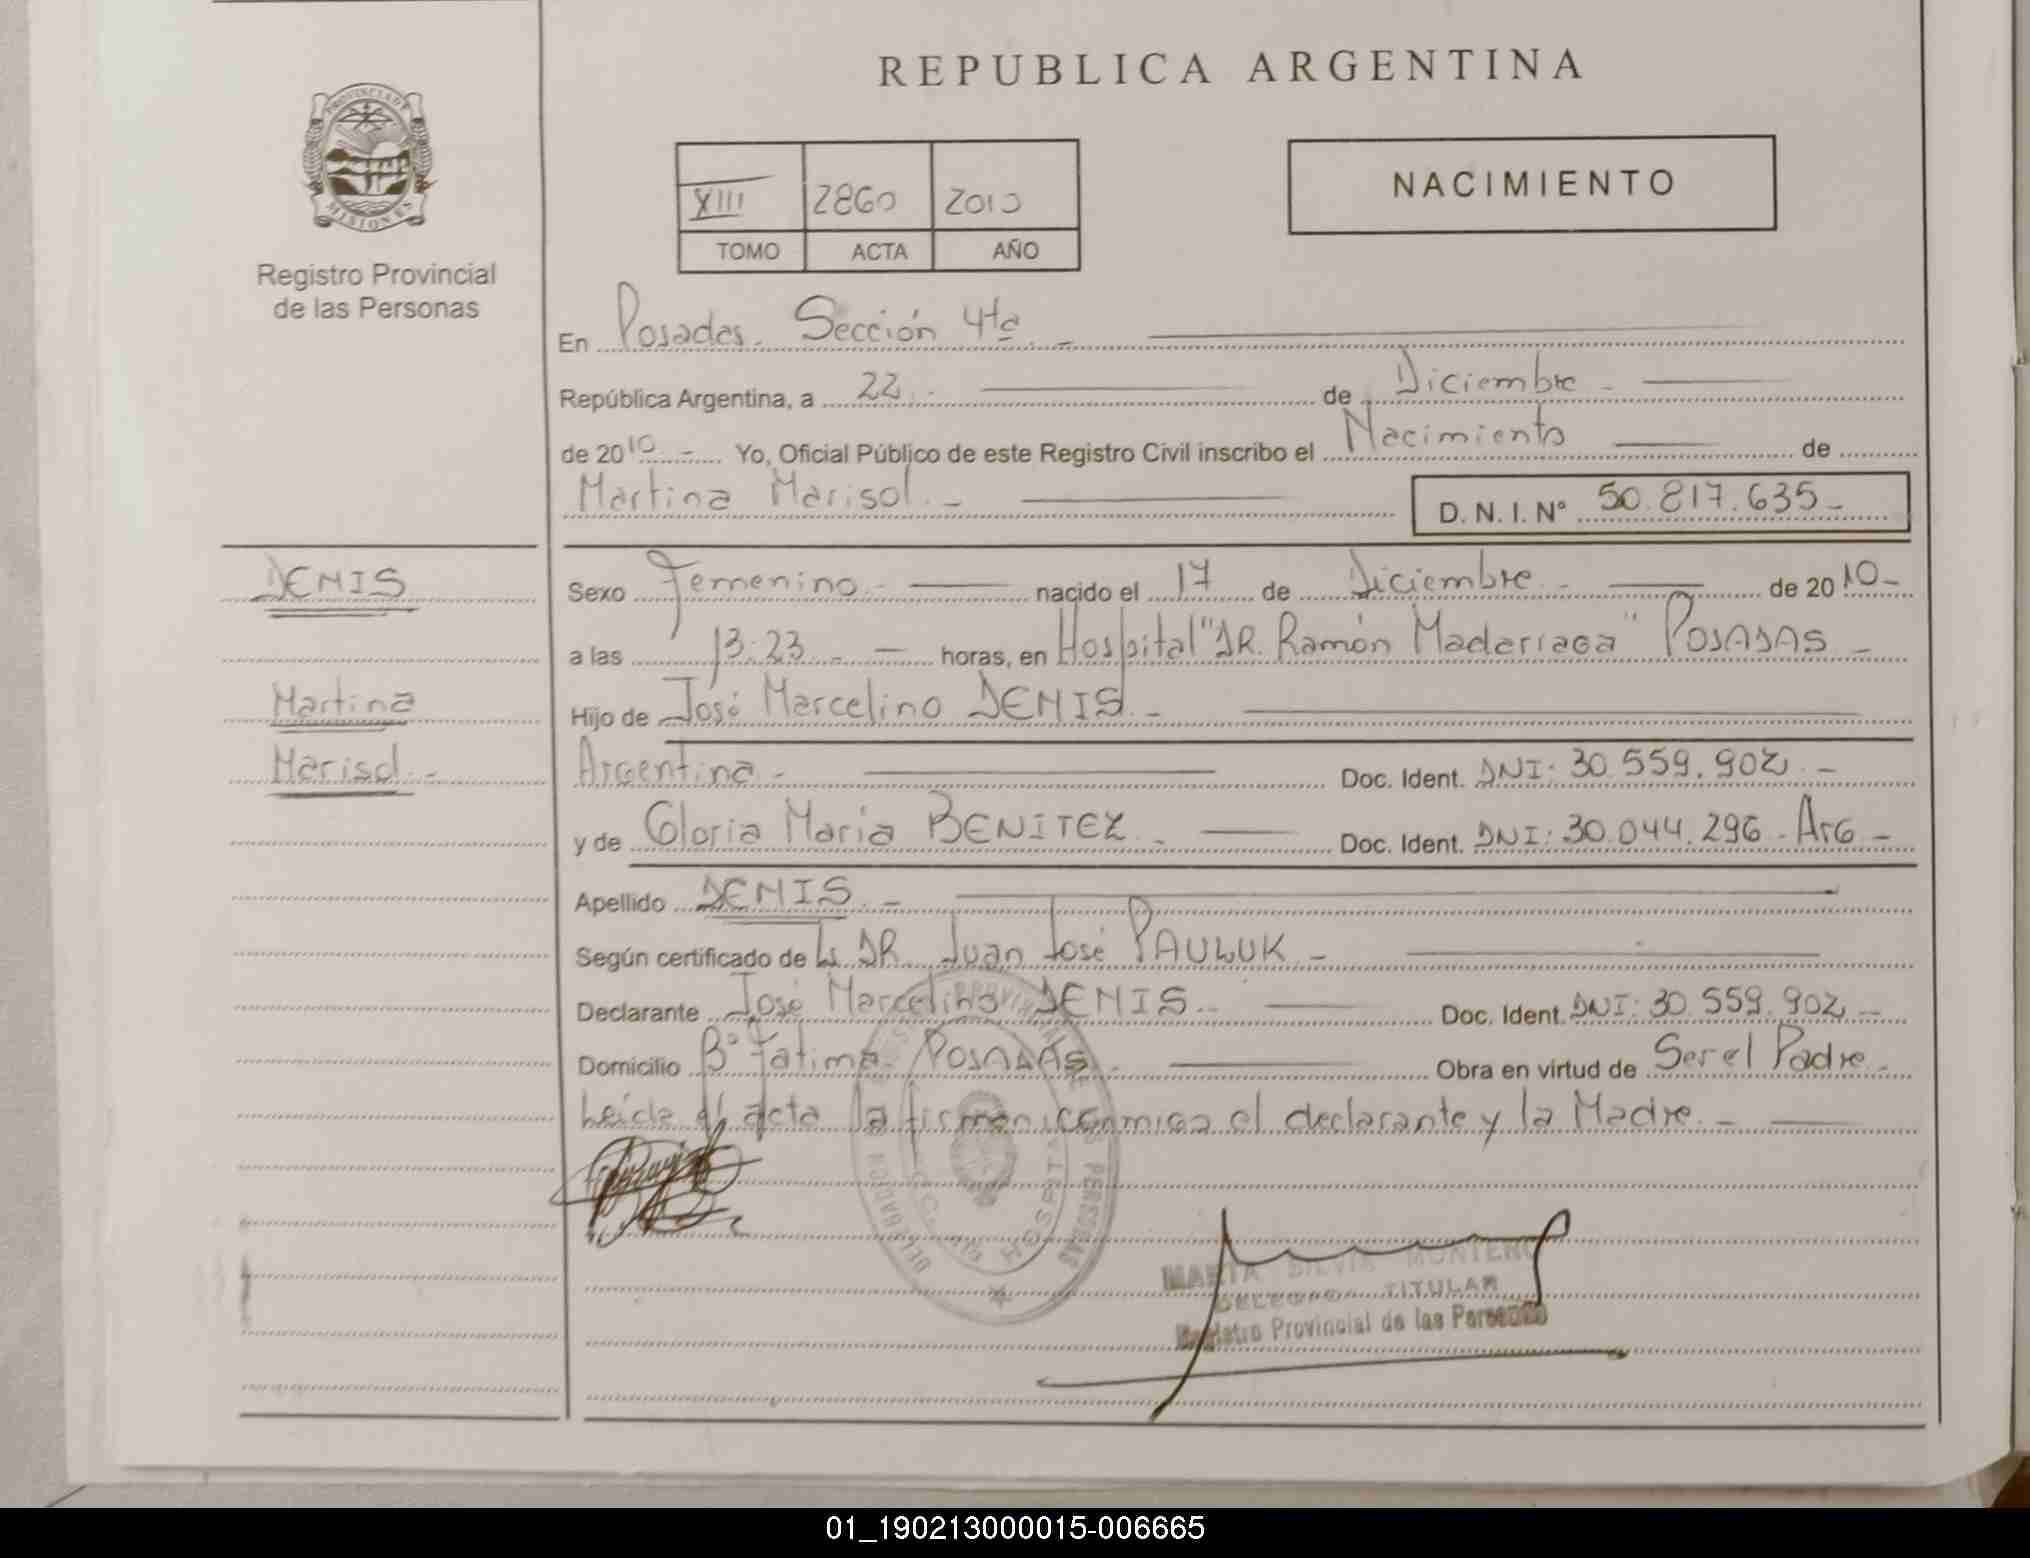 REPUBLICA ARGENTINA
PROVINCIA D
MISIONES
Registro Provincial
de las Personas
XIII 2860 2010
TOMO ACTA AÑO
NACIMIENTO
En Posadas. Sección 4ta. -
República Argentina, a 22. de Diciembre -
de 2010 - Yo, Oficial Público de este Registro Civil inscribo el Nacimiento de
Martina Marisol. -
D. N. I. Nº 50.817.635 -
DENIS
Martina
Marisol. -
Sexo Femenino. - nacido el 17 de Diciembre. - de 2010 -
a las 13:23. - horas, en Hospital "DR. Ramón Madariaga" POSADAS -
Hijo de José Marcelino DENIS. -
Argentina. - Doc. Ident. DNI: 30.559.902. -
y de Gloria Maria BENITEZ. - Doc. Ident. DNI: 30.044.296 - ARG -
Apellido DENIS. -
Según certificado de DR. Juan José PAULUK. -
Declarante José Marcelino DENIS. - Doc. Ident. DNI: 30.559.902 -
Domicilio Bº Fatima - POSADAS. Obra en virtud de Ser el Padre. -
Leída el acta la firman conmigo el declarante y la Madre. -
DELEGACION HOSPITAL
PERSONAS
MARTA SILVIA MONTERO
DELEGADA TITULAR
Registro Provincial de las Personas
01_190213000015-006665